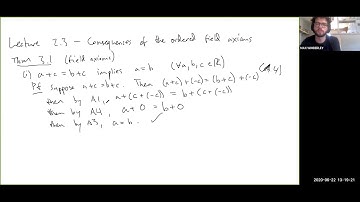 Lecture 2.3 – Consequences of the ordered field axioms
Thm 3.1 (field axioms)
(i) a+c = b+c implies a=b (∀a,b,c ∈ℝ)
Pf Suppose a+c=b+c. Then (a+c)+(-c) = (b+c)+(-c) (A4)
then by A1, a+(c+(-c)) = b+(c+(-c))
then by A4, a+0 = b+0
then by A3, a=b. ✓
2020-06-22 13:10:21